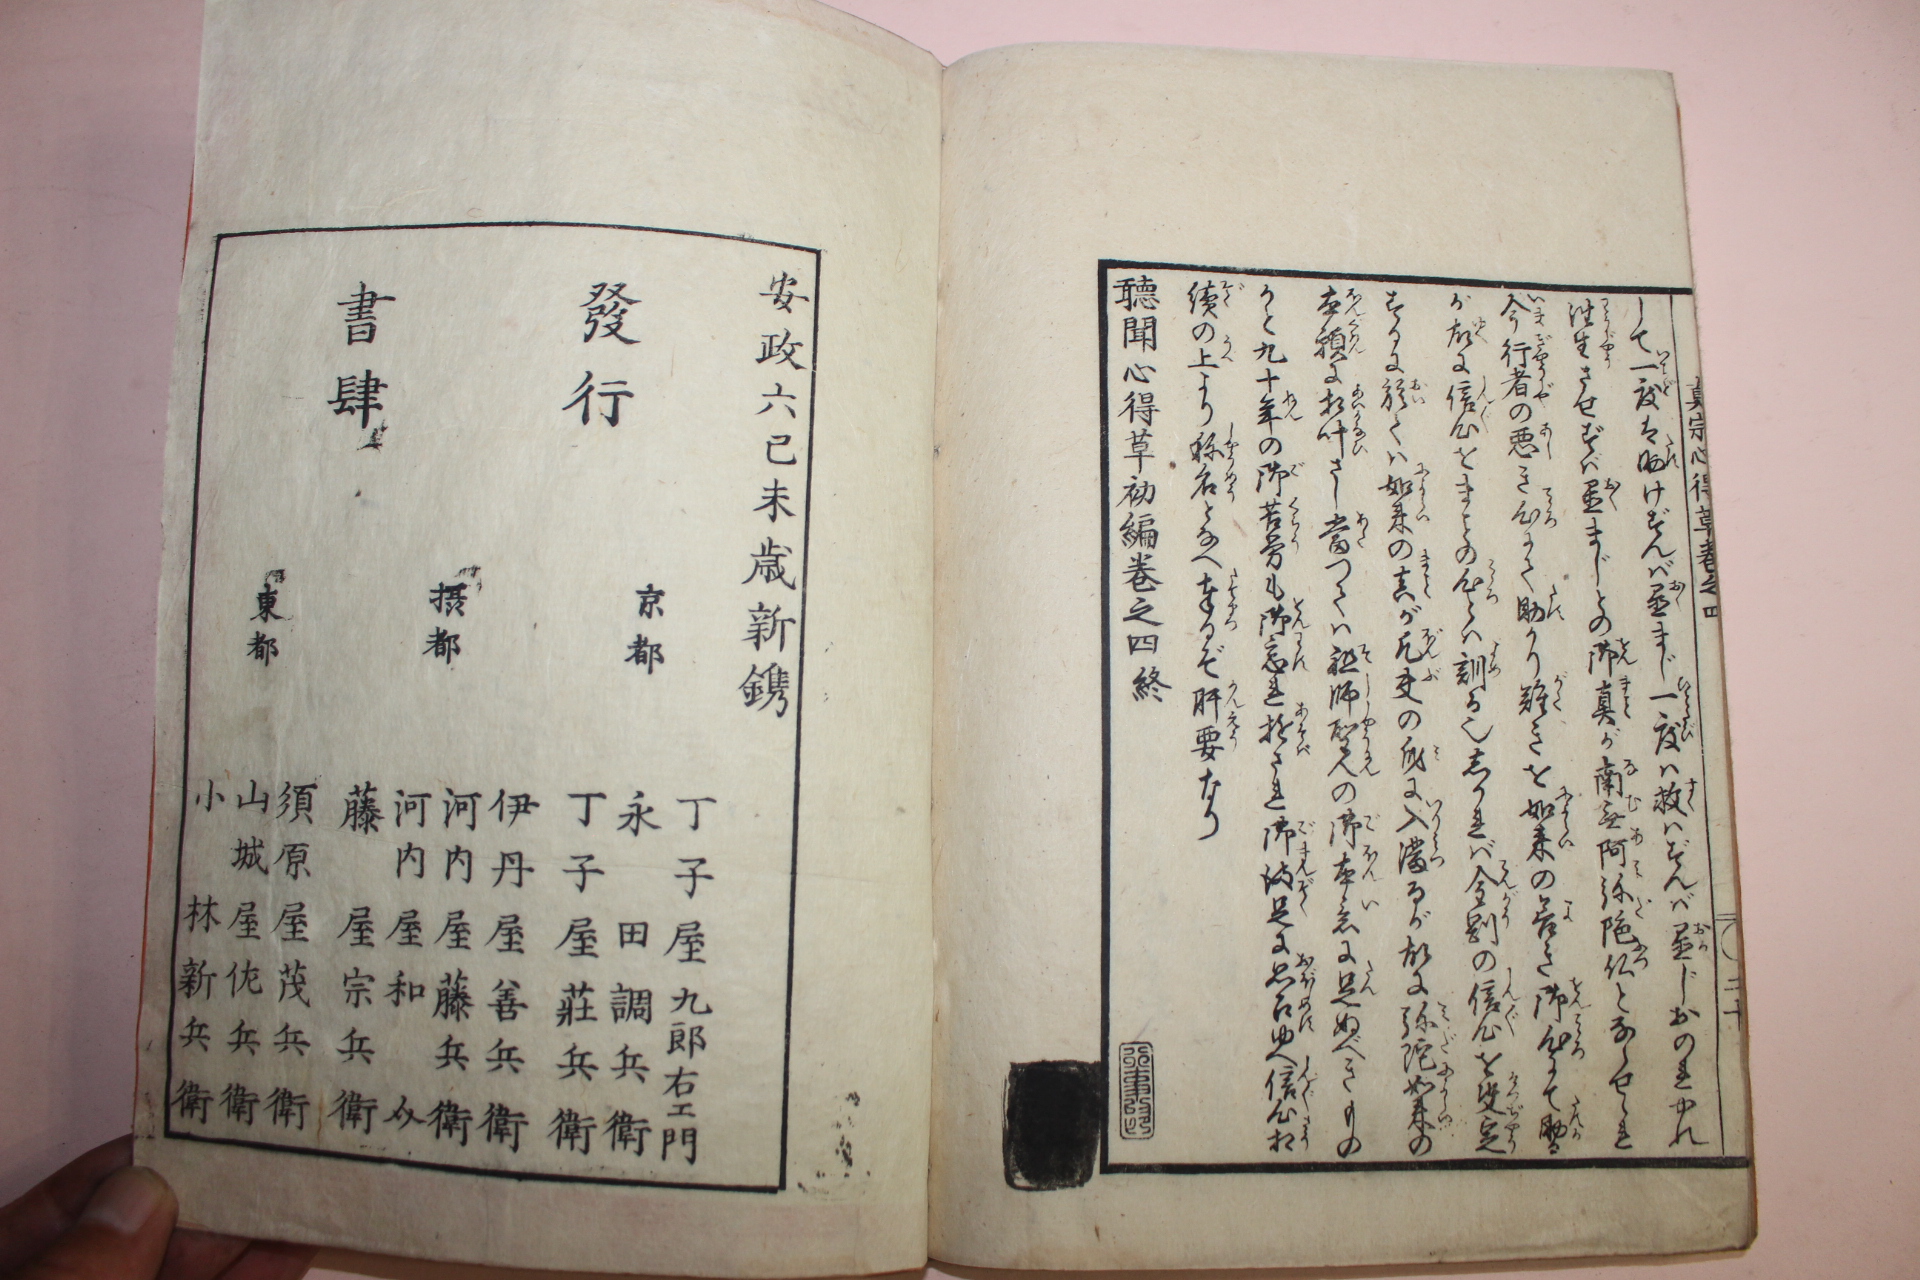 して一度は助けずんば置まじ一度は救はずんば置じおのれやれ
往生させずば置まじとの御真が南無阿弥陀仏とならせられ
今行者の悪き心にて助かり難きを如来の善き御心にて助る
が故に信心をまことの心とは訓る也しかれば金剛の信心を決定
するに於ては如来の真が凡夫の身に入満るが故に弥陀如来の
本願に相叶さし当つては祖師聖人の御本意に足ぬべきもの
かと九十年の御苦労も御忘れ遊され御満足に思召ゆへ信心相
続の上より称名となへ奉るぞ肝要なり
聽聞心得草初編卷之四終
真宗心得草巻之四
安政六己未歳新鐫
發行
書肆
京都
丁子屋九郎右エ門
永田調兵衛
丁子屋莊兵衛
摂都
伊丹屋善兵衛
河内屋藤兵衛
河内屋和助
藤屋宗兵衛
東都
須原屋茂兵衛
山城屋佐兵衛
小林新兵衛